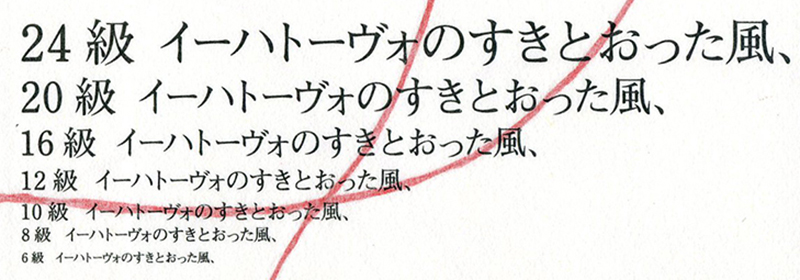 24 級 イーハトーヴォのすきとおった風、
20 級 イーハトーヴォのすきとおった風、
16 級 イーハトーヴォのすきとおった風、
12 級 イーハトーヴォのすきとおった風、
10 級 イーハトーヴォのすきとおった風、
8 級 イーハトーヴォのすきとおった風、
6 級 イーハトーヴォのすきとおった風、